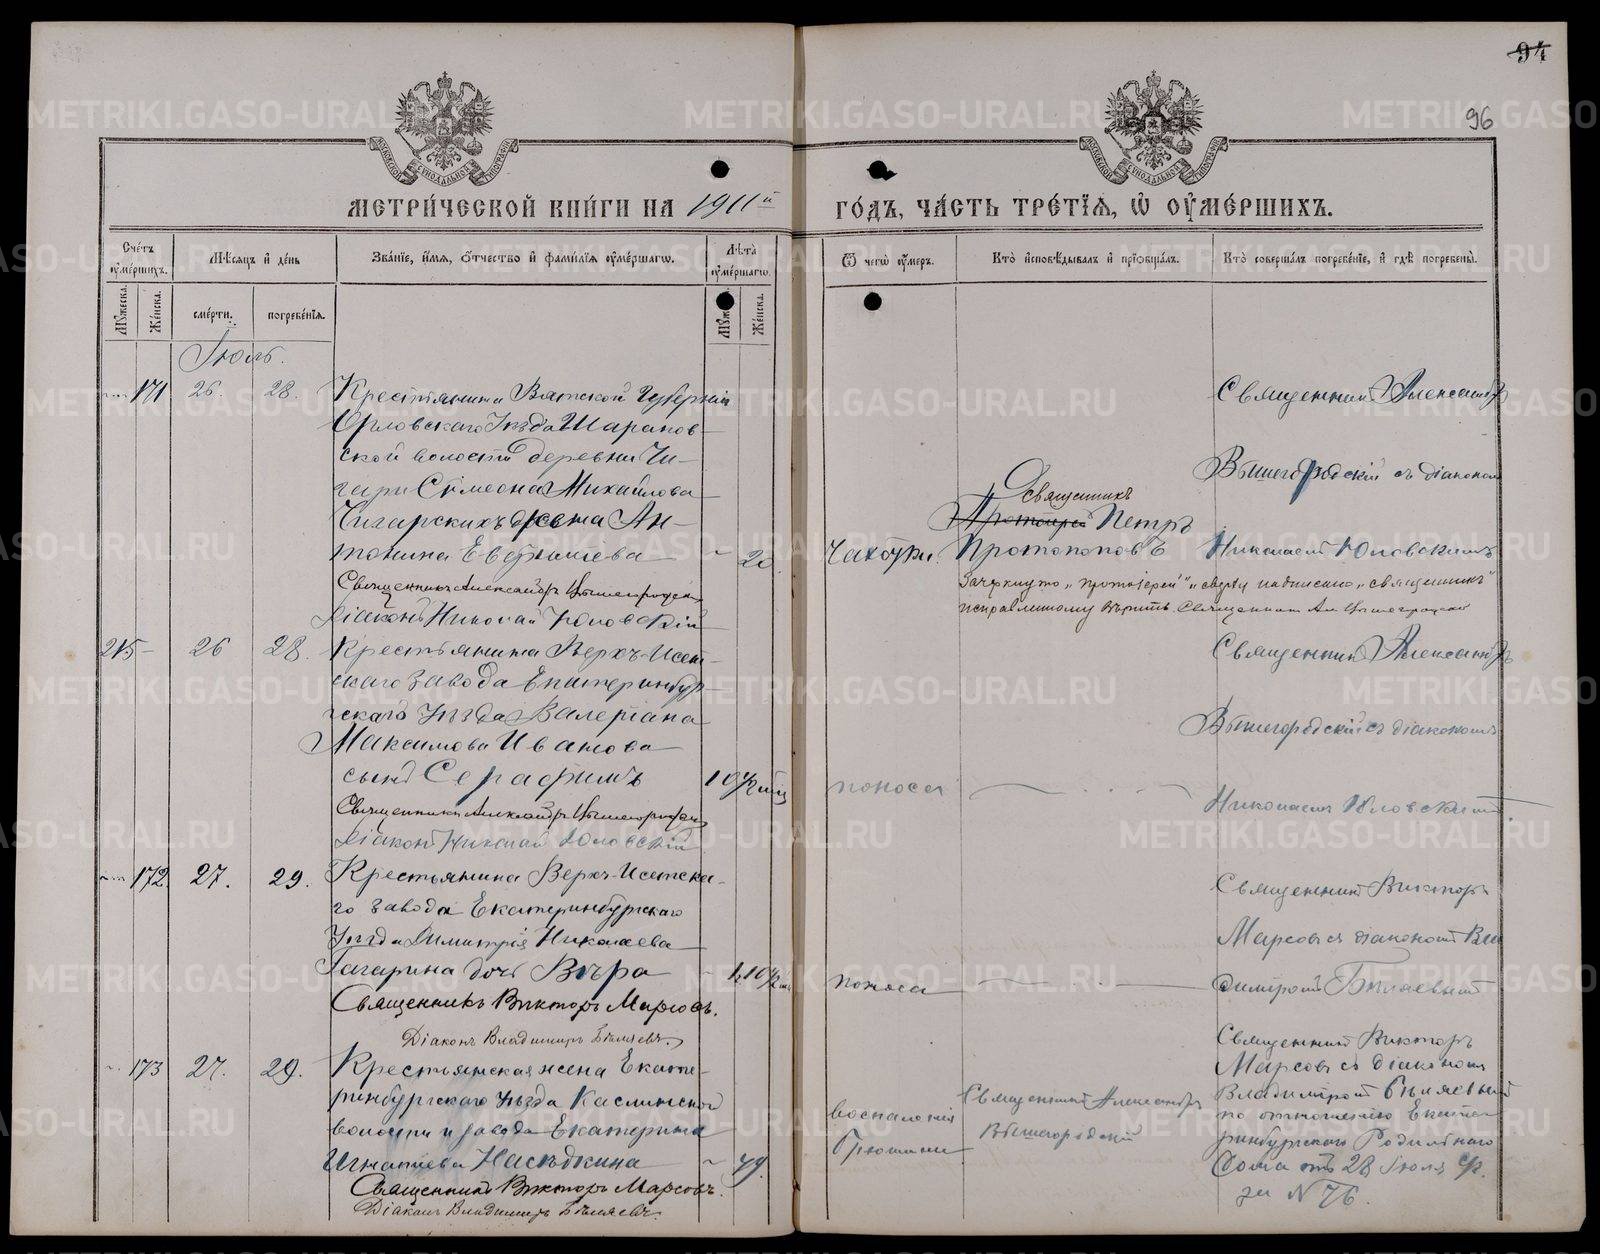 94
96
МЕТРИ́ЧЕСКОЙ КНИ́ГИ НА 1911й ГО́ДЪ, ЧА́СТЬ ТРЕ́ТІѦ, Ѽ ОУ҆МЕ́РШИХЪ.
Сче́тъ оу҆ме́ршихъ.
Мѣ́сѧцъ и҆ де́нь
Зва́нїе, и҆́мѧ, ѻ҆́тчество и҆ фами́лїѧ оу҆ме́ршагѡ.
Лѣ́та оу҆ме́ршагѡ.
Ѿ чегѡ̀ оу҆́меръ.
Кто̀ и҆сповѣ́дывалъ и҆ прїѡбща́лъ.
Кто̀ соверша́лъ погребе́нїе, и҆ гдѣ̀ погребены̀.
Мꙋ́жеска.
Же́нска.
сме́рти.
погребе́нїѧ.
Же́нска.
Іюль.
171 26. 28.
Крестьянина Вятской Губерніи
Орловскаго Уѣзда Шаранов-
ской волости деревни Чи-
гари Сѵмеона Михайлова
Чигарскихъ жена Ан-
тонина Евѳиміева 20
Священникъ Александръ Вышегородскій
Діаконъ Николай Юловскій
Чахотки.
священникъ
Протоіерей Петръ
Протопоповъ
Зачеркнуто „протоіерей" и сверху надписано „священникъ"
исправленному вѣрить Священникъ Ал. Вышегородскій
Священникъ Александръ
Вышегородскій съ діакономъ
Николаемъ Юловскимъ
215 26 28.
Крестьянина Верхъ-Исет-
скаго завода Екатеринбур-
гскаго Уѣзда Валеріана
Максимова Иванова
сынъ Серафимъ 10½ мѣс
Священникъ Александръ Вышегородскій
Діаконъ Николай Юловскій
поноса
Священникъ Александръ
Вышегородскій съ діакономъ
Николаемъ Юловскимъ.
172. 27. 29.
Крестьянина Верхъ-Исетска-
го завода Екатеринбургскаго
Уѣзда Димитрія Николаева
Гагарина дочь Вѣра
Священникъ Викторъ Марсовъ.
Діаконъ Владимиръ Бѣляевъ.
поноса
Священникъ Викторъ
Марсовъ съ діакономъ Вла
димиромъ Бѣляевымъ
173 27. 29.
Крестьянская жена Екате-
ринбургскаго Уѣзда Каслинской
волости и завода Екатерина
Игнатіева Насѣдкина 49.
Священникъ Викторъ Марсовъ.
Діаконъ Владимиръ Бѣляевъ.
воспаленія
брюшины
Священникъ Александръ
Вышегородскій
Священникъ Викторъ
Марсовъ съ діакономъ
Владимиромъ Бѣляевымъ
по отношенію Екате-
ринбургскаго Родильнаго
Дома отъ 28 Іюля с/г.
за № 76.